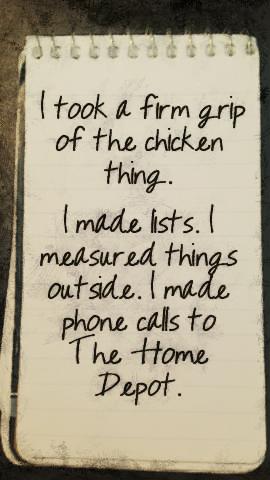 I took a firm grip
of the chicken
thing.
I made lists. I
measured things
outside. I made
phone calls to
The Home
Depot.